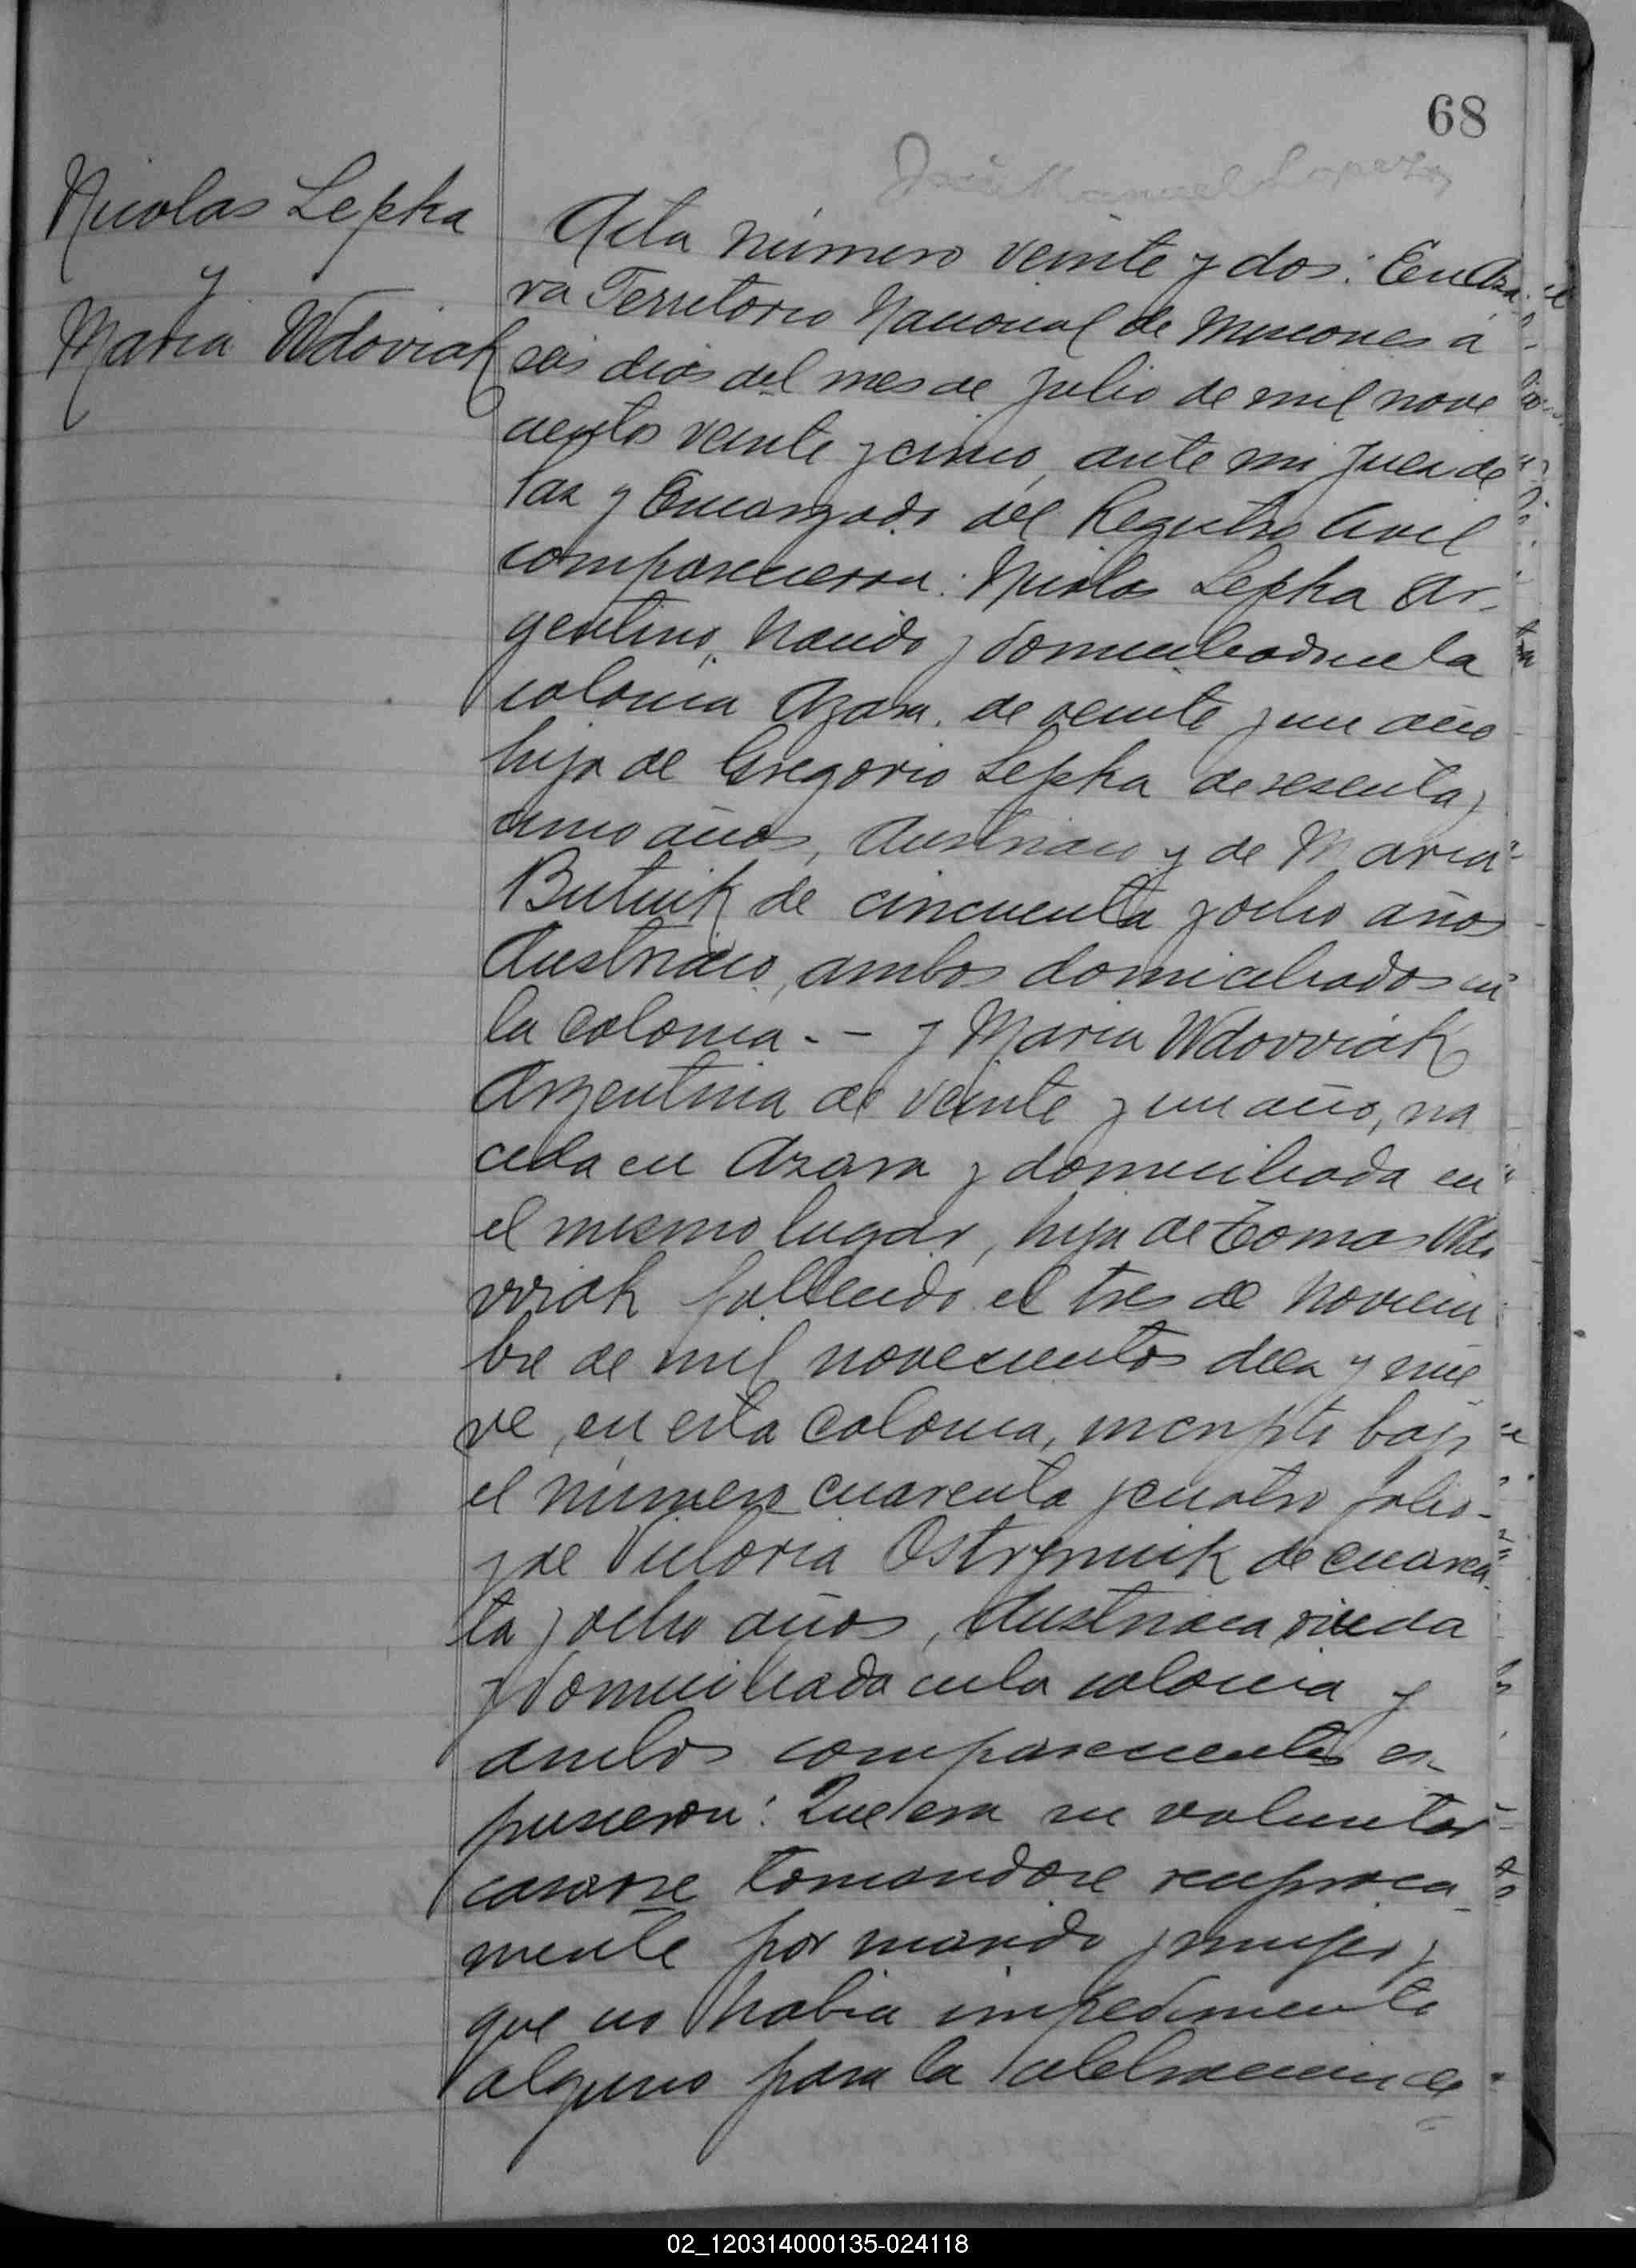 68
Nicolas Lepka
y
Maria Wdoviak
Acta número veinte y dos: En Aza-
ra Territorio Nacional de Misiones á
seis dias del mes de Julio de mil nove
cientos veinte y cinco, ante mi Juez de
Paz y Encargado del Registro Civil
comparecieron: Nicolas Lepka Ar-
gentino, nacido y domiciliado en la
colonia Azara, de veinte y un año
hijo de Gregorio Lepka de sesenta y
cinco años, Austriaco y de Maria
Butnik de cincuenta y ocho años
Austriaco, ambos domiciliados en
la colonia. - y Maria Wdovviak
Argentina de veinte y un año, na
cida en Azara y domiciliada en
el mismo lugar, hija de Tomas Wdo
vviak fallecido el tres de Noviem
bre de mil novecientos diez y nue
ve, en esta colonia, inscripto bajo
el número cuarenta y cuatro folio-
y de Victoria de cuaren
ta y ocho años, Austriaca viuda
y domiciliada en la colonia y
ambos comparecientes es-
pusieron: Que era su voluntad
casarse tomandose reciproca
mente por marido y mujer y
que no habia impedimento
alguno para la celebracion de
02_120314000135-024118